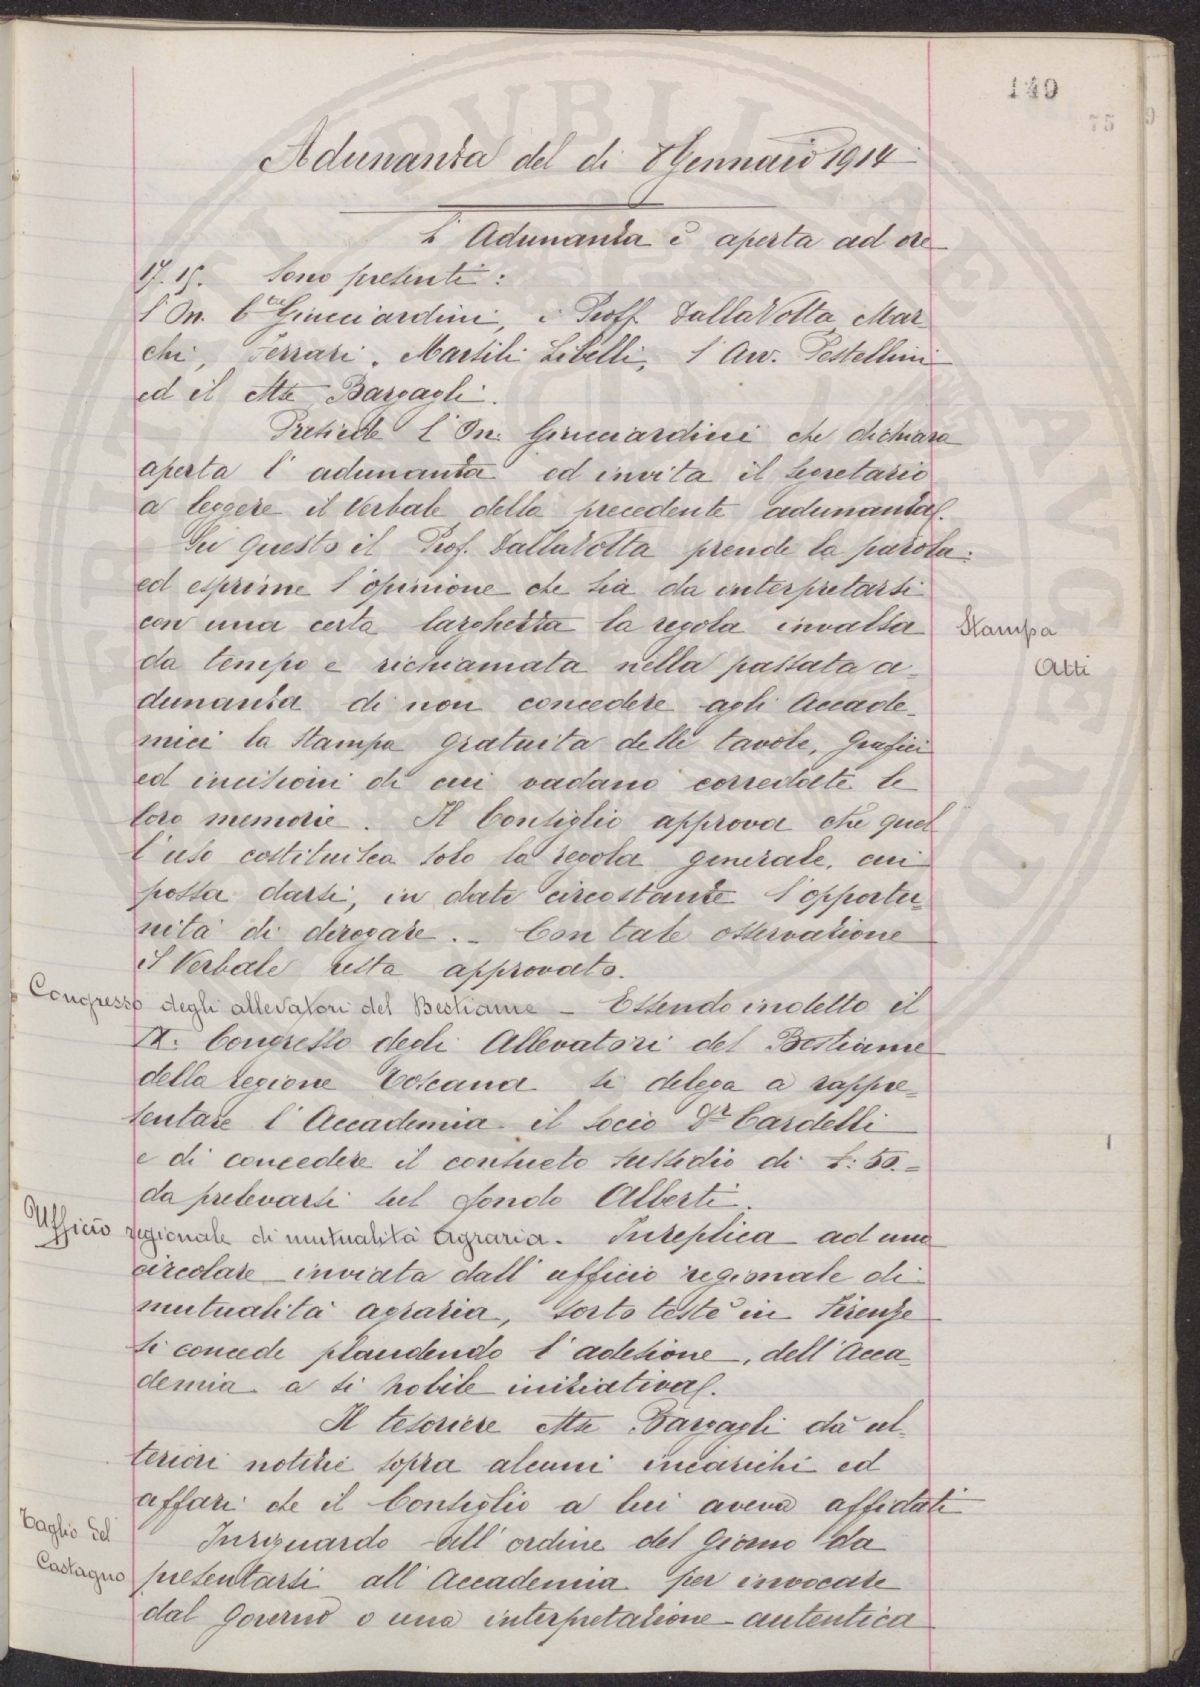 149
75
Adunanza del dì 8 Gennaio 1914
L'Adunanza è aperta ad ore
17.15. Sono presenti:
l'On. Cte Guicciardini, i Proff. Dalla Volta, Mar
chi, Ferrari, Marsili Libelli, l'Avv. Pestellini
ed il Mse Bargagli.
Presiede l'On. Guicciardini che dichiara
aperta l'adunanza ed invita il Segretario
a leggere il Verbale della precedente adunanza.
Su questo il Prof. Dalla Volta prende la parola:
ed esprime l'opinione che sia da interpretarsi
con una certa larghezza la regola invalsa
Stampa
Atti
da tempo e richiamata nella passata a-
dunanza di non concedere agli Accade-
mici la stampa gratuita delle tavole, grafici
ed incisioni di cui vadano corredate le
loro memorie. Il Consiglio approva che quel
l'uso costituisca solo la regola generale, cui
possa darsi, in date circostanze l'opportu-
nità di derogare. - Con tale osservazione
il Verbale resta approvato.
Congresso degli allevatori del Bestiame - Essendo indetto il
IX. Congresso degli Allevatori del Bestiame
della regione Toscana si delega a rappre=
sentare l'Accademia il socio Dr Cardelli
e di concedere il consueto sussidio di £: 50.=
da prelevarsi sul fondo Alberti.
Ufficio regionale di mutualità agraria. In replica ad una
circolare inviata dall'ufficio regionale di
mutualità agraria, sorto testè in Firenze
si concede plaudendo l'adesione, dell'Acca-
demia a sì nobile iniziativa.
Il tesoriere Mse Bargagli dà ul-
teriori notizie sopra alcuni incarichi ed
affari che il Consiglio a lui aveva affidati
Taglio del
Castagno
In riguardo all'ordine del Giorno da
presentarsi all'Accademia per invocare
dal Governo o una interpretazione autentica